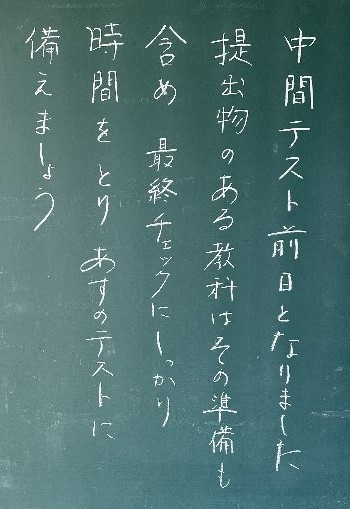 中間テスト前日となりました
提出物のある教科はその準備も
含め 最終チェックにしっかり
時間をとり あすのテストに
備えましょう